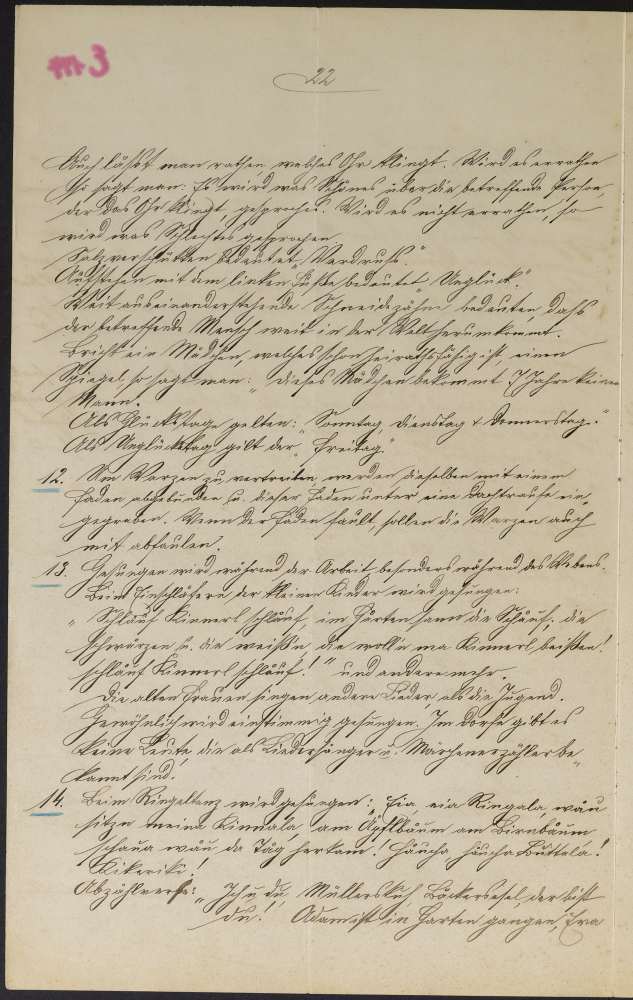 22
Auch läßt man rathen welches Ohr klingt. Wird es errathen
so sagt man: Es wird was Schönes über die betreffende Person,
der das Ohr klingt, gesprochen. Wird es nicht errathen, so
wird was Schlechtes gesprochen.
Salzverschütten bedeutet „Verdruß."
Aufstehen mit dem linken Fuße bedeutet „Unglück".
Weit auseinanderstehende Schneidezähne bedeuten daß
der betreffende Mensch weit in der Welt herumkommt.
Bricht ein Mädchen, welches schon heirathsfähig ist, einen
Spiegel, so sagt man: „dieses Mädchen bekommt 7 Jahre keinen
Mann."
Als Glückstage gelten: „Sonntag, Dienstag & Donnerstag."
Als Unglückstag gilt der „Freitag."
12. Um Warzen zu vertreiben, werden dieselben mit einem
Faden abgebunden u. dieser Faden unter eine Dachtraufe ein-
gegraben. Wenn der Faden fault, sollen die Warzen auch
mit abfaulen.
13. Gesungen wird während der Arbeit besonders während des Webens.
Beim Einschläfern der kleinen Kinder wird gesungen:
„Schlauf Kinnerl schlauf, im Garten sann die Schauf: die
schwarzen u. die weiß'n, die woll'n ma Kinnerl beißen!
schlauf Kinnerl schlauf!" und andere mehr.
Die alten Frauen singen andere Lieder, als die Jugend.
Gewöhnlich wird einstimmig gesungen. Im Dorfe gibt es
keine Leute, die als Liedersänger u. Märchenerzähler be-
kannt sind.
14. Beim Ringeltanz wird gesungen: „Eia, eia Ringala, wäu
sitzn meina Kinnala, am Äpflbaum am Birnbaum
schaua wäu da Tåg herkam! Haucha haucha Buttala!
Kikeriki!
Abzählverse: „Ich u. du, Müllerskuh, Bäckersesel, der bist
du! Adam ist in Garten gangen, Eva